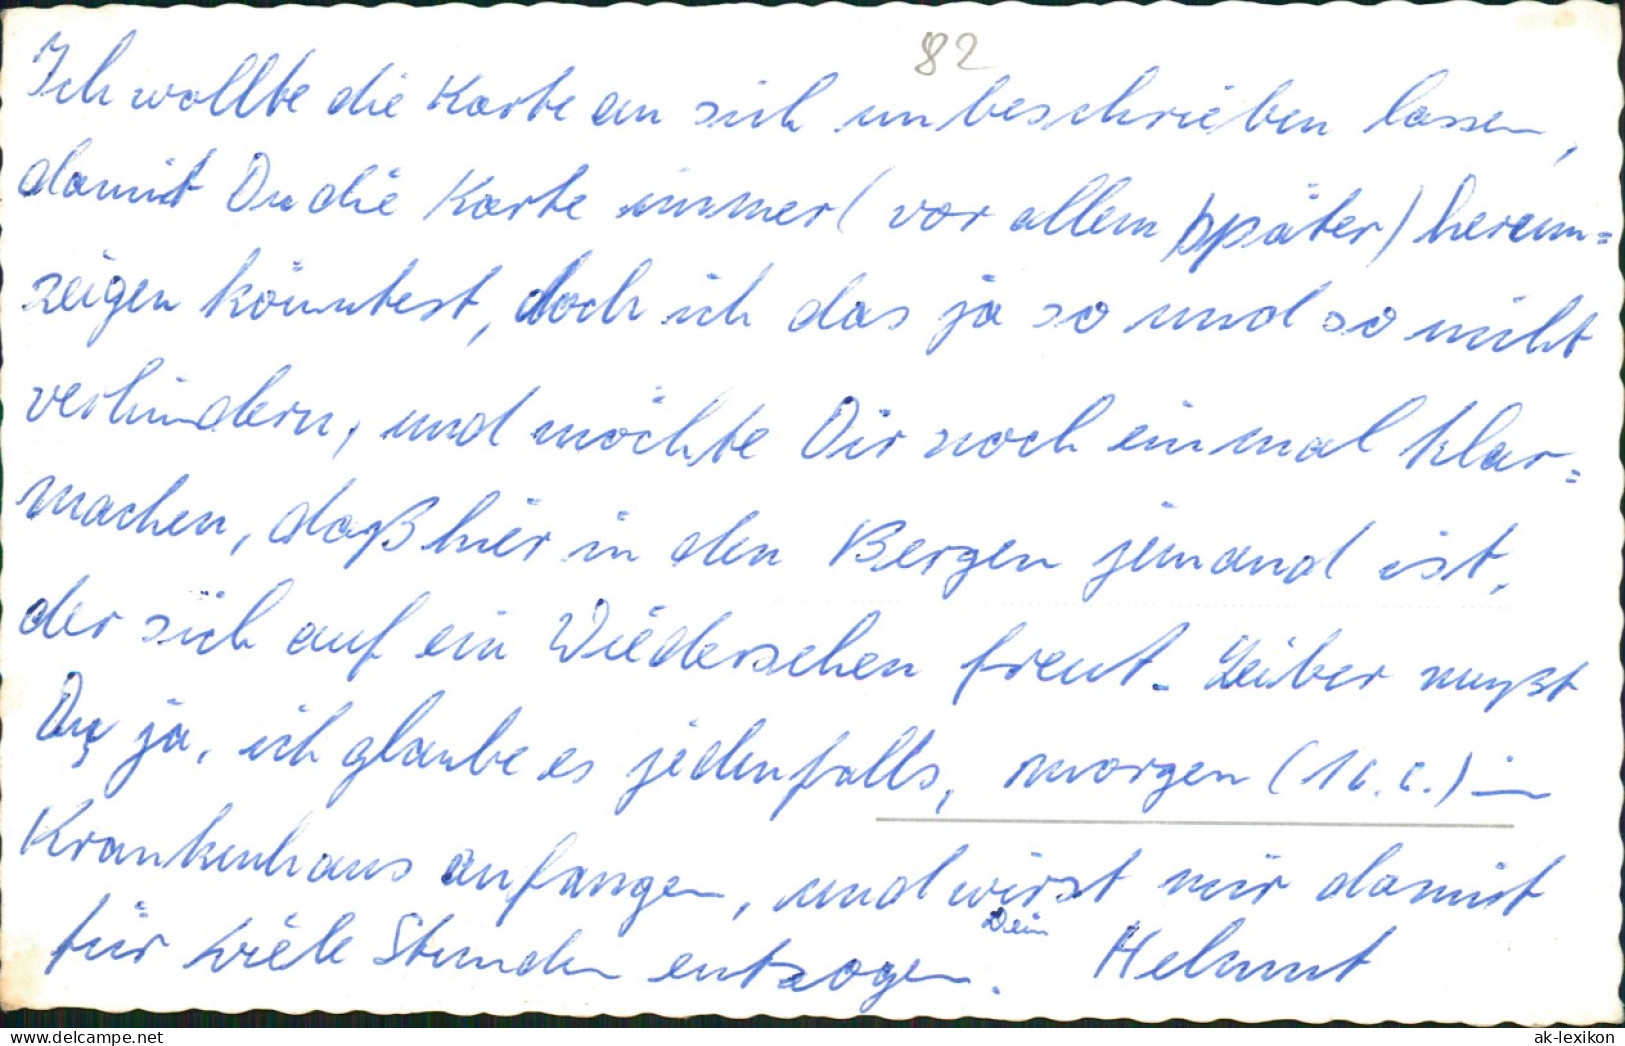 82
Ich wollte die Karte an sich unbeschrieben lassen,
damit Du die Karte immer (vor allem später) herum=
zeigen könntest, doch ich das ja so und so nicht
verhindern, und möchte Dir noch einmal klar=
machen, daß hier in den Bergen jemand ist,
der sich auf ein Wiedersehen freut. Leiber mußt
Du ja, ich glaube es jedenfalls, morgen (16.6.) im
Krankenhaus anfangen, und wirst mir damit
für viele Stunden entzogen. Dein Helmut
www.delcampe.net
ak-lexikon